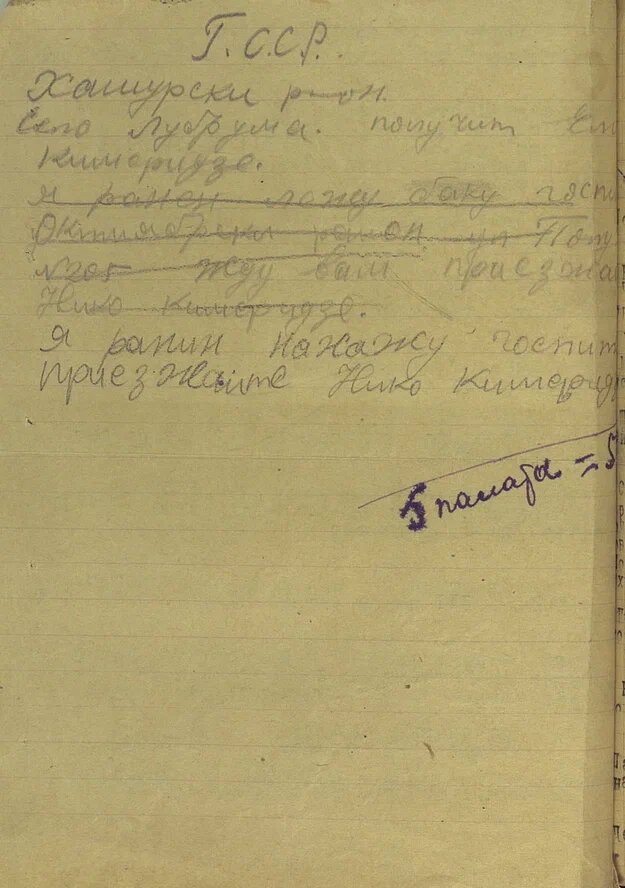 Г.С.С.Р.
Хашурски район.
Село Лубрума. получит
Кимеридзе.
я ранон лажу баку гяспи
Октиабрски район ул Попу
№205 жду вам приезжа
Нико Кимеридзе.
Я ранин нахажу госпит
приезжаите Нико Кимерид
5 палата = 5